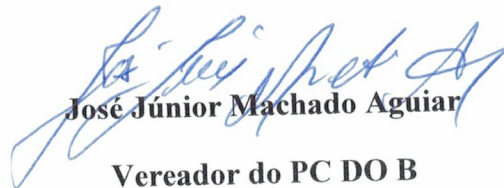 José Júnior Machado Aguiar
Vereador do PC DO B